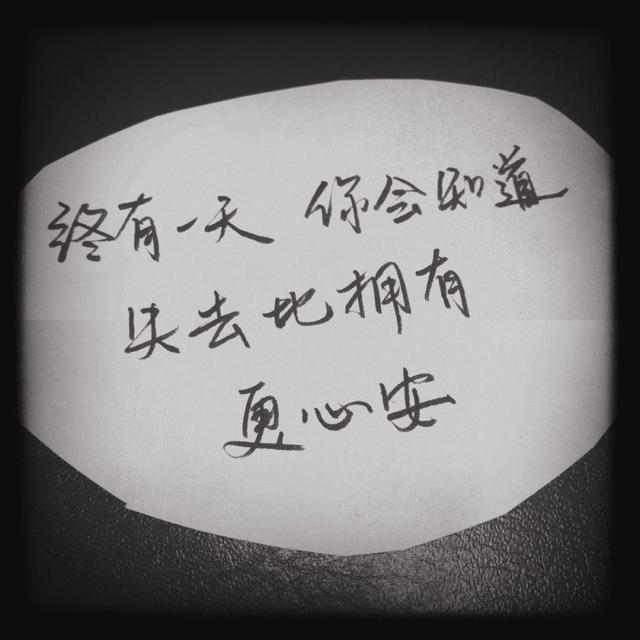 终有一天 你会知道
失去比拥有
更心安